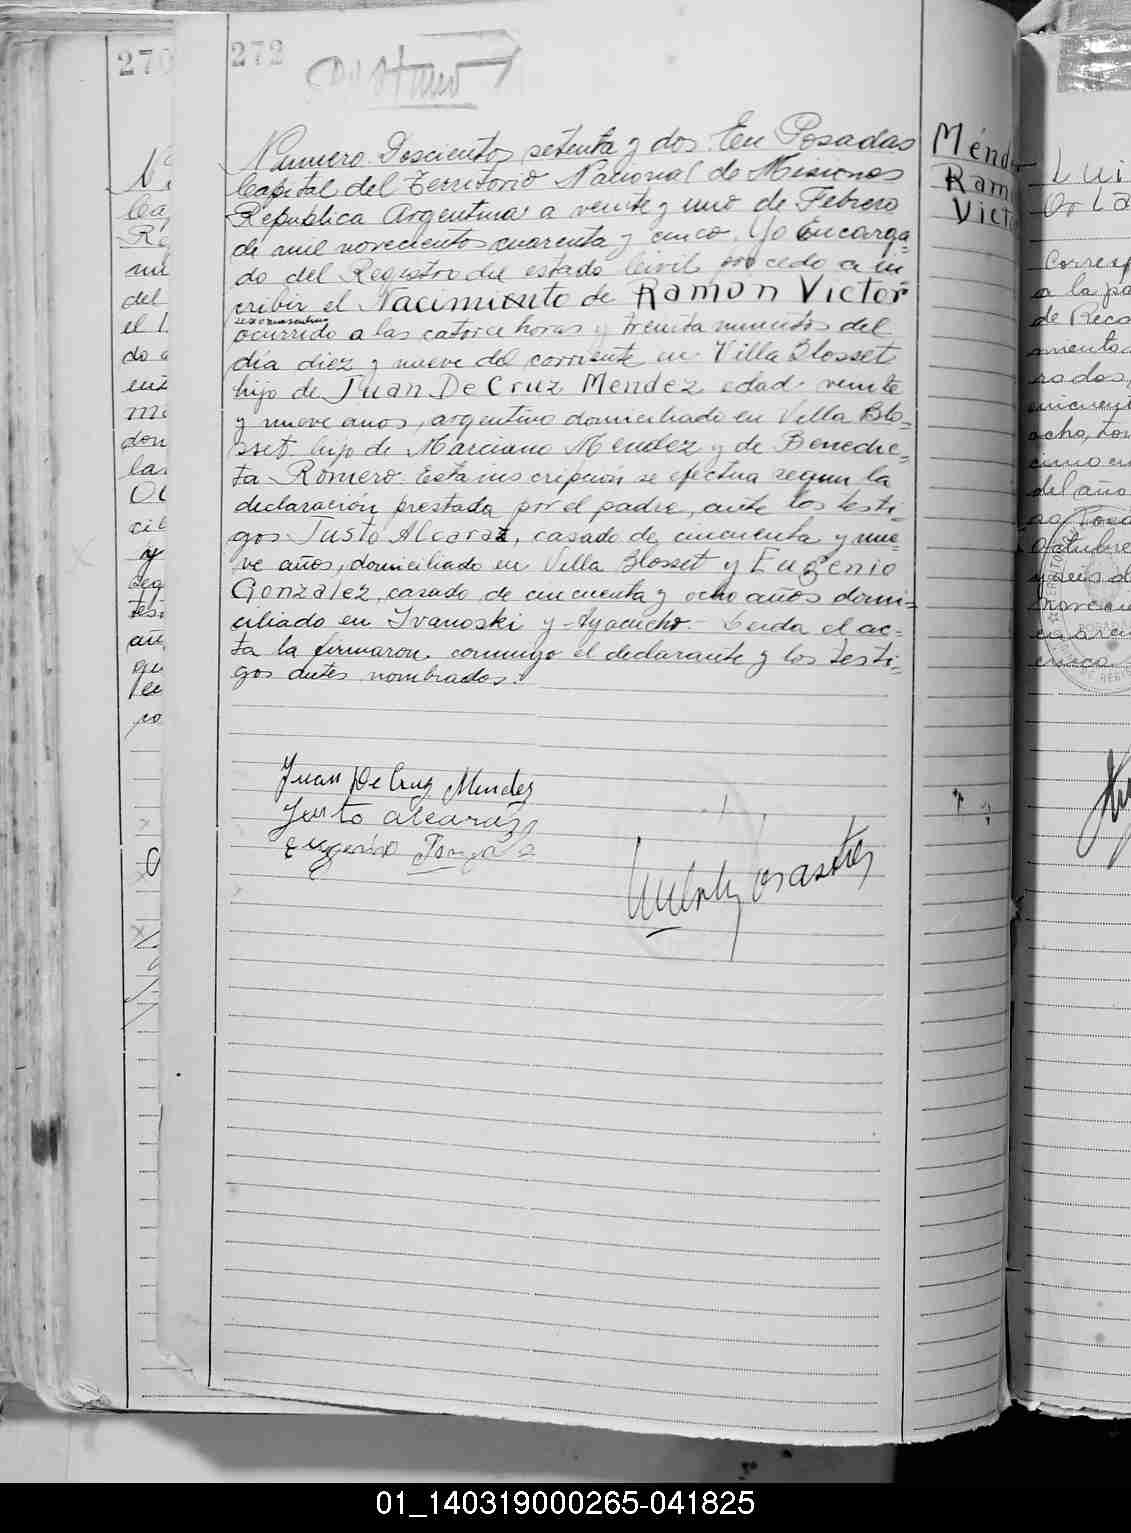 270
272
Méndez
Ramón
Victor
Numero Doscientos setenta y dos. En Posadas
Capital del Territorio Nacional de Misiones
República Argentina a veinte y uno de Febrero
de mil novecientos cuarenta y cinco. Yo Encarga-
do del Registro del estado Civil procedo a ins
cribir el Nacimiento de Ramón Victor
sexo masculino
ocurrido a las catorce horas y treinta minutos del
día diez y nueve del corriente en Villa Blosset
hijo de Juan De Cruz Mendez edad veinte
y nueve anos, argentino domiciliado en Villa Blo-
sset hijo de Marciano Mendez y de Benedic-
ta Romero. Esta inscripción se efectua segun la
declaración prestada por el padre, ante los testi-
gos Justo Alcaraz, casado de cincuenta y nue-
ve años, domiciliado en Villa Blosset y Eugenio
Gonzalez, casado de cincuenta y ocho años domi-
ciliado en Ivanoski y Ayacucho. Leida el ac-
ta la firmaron conmigo el declarante y los testi-
gos antes nombrados.
Juan De Cruz Mendez
Justo alcaraz
Eugenio
Correcp
a la pa
de Reco
cincuent
del año
Octubre
01_140319000265-041825